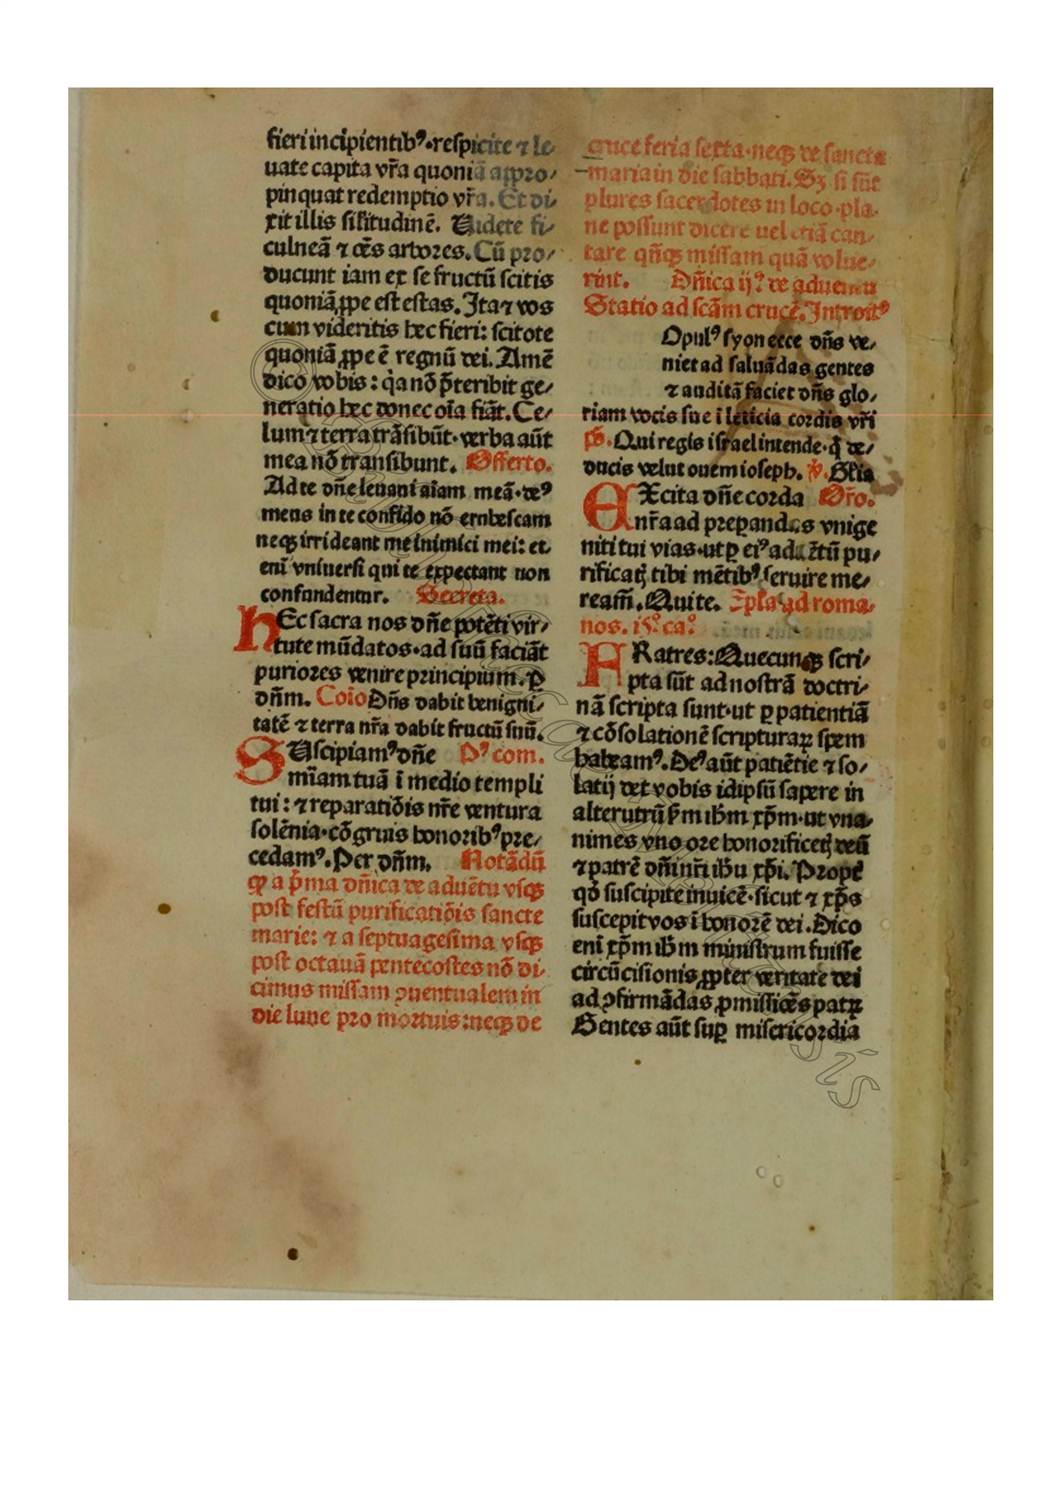 fieri incipientibꝰ·respicite ⁊ le⸗
uate capita vr̃a quoniā appro⸗
pinquat redemptio vr̃a. Et di⸗
xit illis sil̃itudinē. Videte fi⸗
culneā ⁊ oẽs arbores. Cū pro⸗
ducunt iam ex se fructū scitis
quoniā ꝓpe est estas. Ita ⁊ vos
cum videritis hec fieri: scitote
quoniā ꝓpe ē regnū dei. Amē
dico vobis: q̓a nō p̃teribit ge⸗
neratio hec donec oĩa fiāt. Ce⸗
lum ⁊ terra trāsibūt·verba aūt
mea nō transibunt. Offerto.
Ad te dñe leuaui aĩam meā·deꝰ
meus in te confido nō erubescam
neqꝫ irrideant me inimici mei: et
enī vniuersi qui te expectant non
confundentur. Secreta.
HEc sacra nos dñe potēti vir⸗
tute mūdatos·ad suū faciāt
puriores venire principium. ꝑ
dñm. Coĩo Dñs dabit benigni⸗
tatē ⁊ terra nr̃a dabit fructū suū.
SUscipiamꝰ dñe Pꝰ com.
mĩam tuā ī medio templi
tui: ⁊ reparatiōis nr̃e ventura
solēnia·cōgruis honoribꝰ pre⸗
cedamꝰ. Per dñm. Notādū
qꝫ a p̃ma dñica de aduētu vsqꝫ
post festū purificatiōis sancte
marie: ⁊ a septuagesima vsqꝫ
post octauā pentecostes nō di⸗
cimus missam ꝯuentualem in
die lune pro mortuis: neqꝫ de
cruce feria sexta·neqꝫ de sancta
maria in die sabbati. Sꝫ si sūt
plures sacerdotes in loco·pla⸗
ne possunt dicere uel etiā can⸗
tare qñqꝫ missam quā volue⸗
rint. Dñica ij.ᵃ de aduentu
Statio ad scām crucē. Introitꝰ
Opulꝰ syon ecce dñs ve⸗
niet ad saluādas gentes
⁊ auditā faciet dñs glo⸗
riam vocis sue ī leticia cordis vr̃i
pš. Qui regis israel intende·q̓ de⸗
ducis velut ouem ioseph. ℣. Gl̃ia
EXcita dñe corda Or̃o.
nr̃a ad preparandas vnige
niti tui vias·ut ꝑ eiꝰ aduētū pu⸗
rificatꝫ tibi mētibꝰ seruire me⸗
ream̃. Qui te. Ep̃la ad roma⸗
nos. 15.º ca.º
FRatres: Quecunqꝫ scri⸗
pta sūt ad nostrā doctri⸗
nā scripta sunt·ut ꝑ patientiā
⁊ cōsolationē scripturaꝝ spem
habeamꝰ. Deꝰ aūt patiētie ⁊ so⸗
latij det vobis idipsū sapere in
alterutrū ẜm ihm̃ xp̃m·ut vna⸗
nimes vno ore honorificetꝫ deū
⁊ patrē dñi nr̃i ihũ xp̃i. Propt̃
qḋ suscipite inuicē·sicut ⁊ xp̃s
suscepit vos ī honorē dei. Dico
enī xp̃m ihm̃ ministrum fuisse
circūcisionis ꝓpter veritatē dei
ad ꝯfirmādas ꝓmissiões patꝝ
Gentes aūt suꝑ misericordia